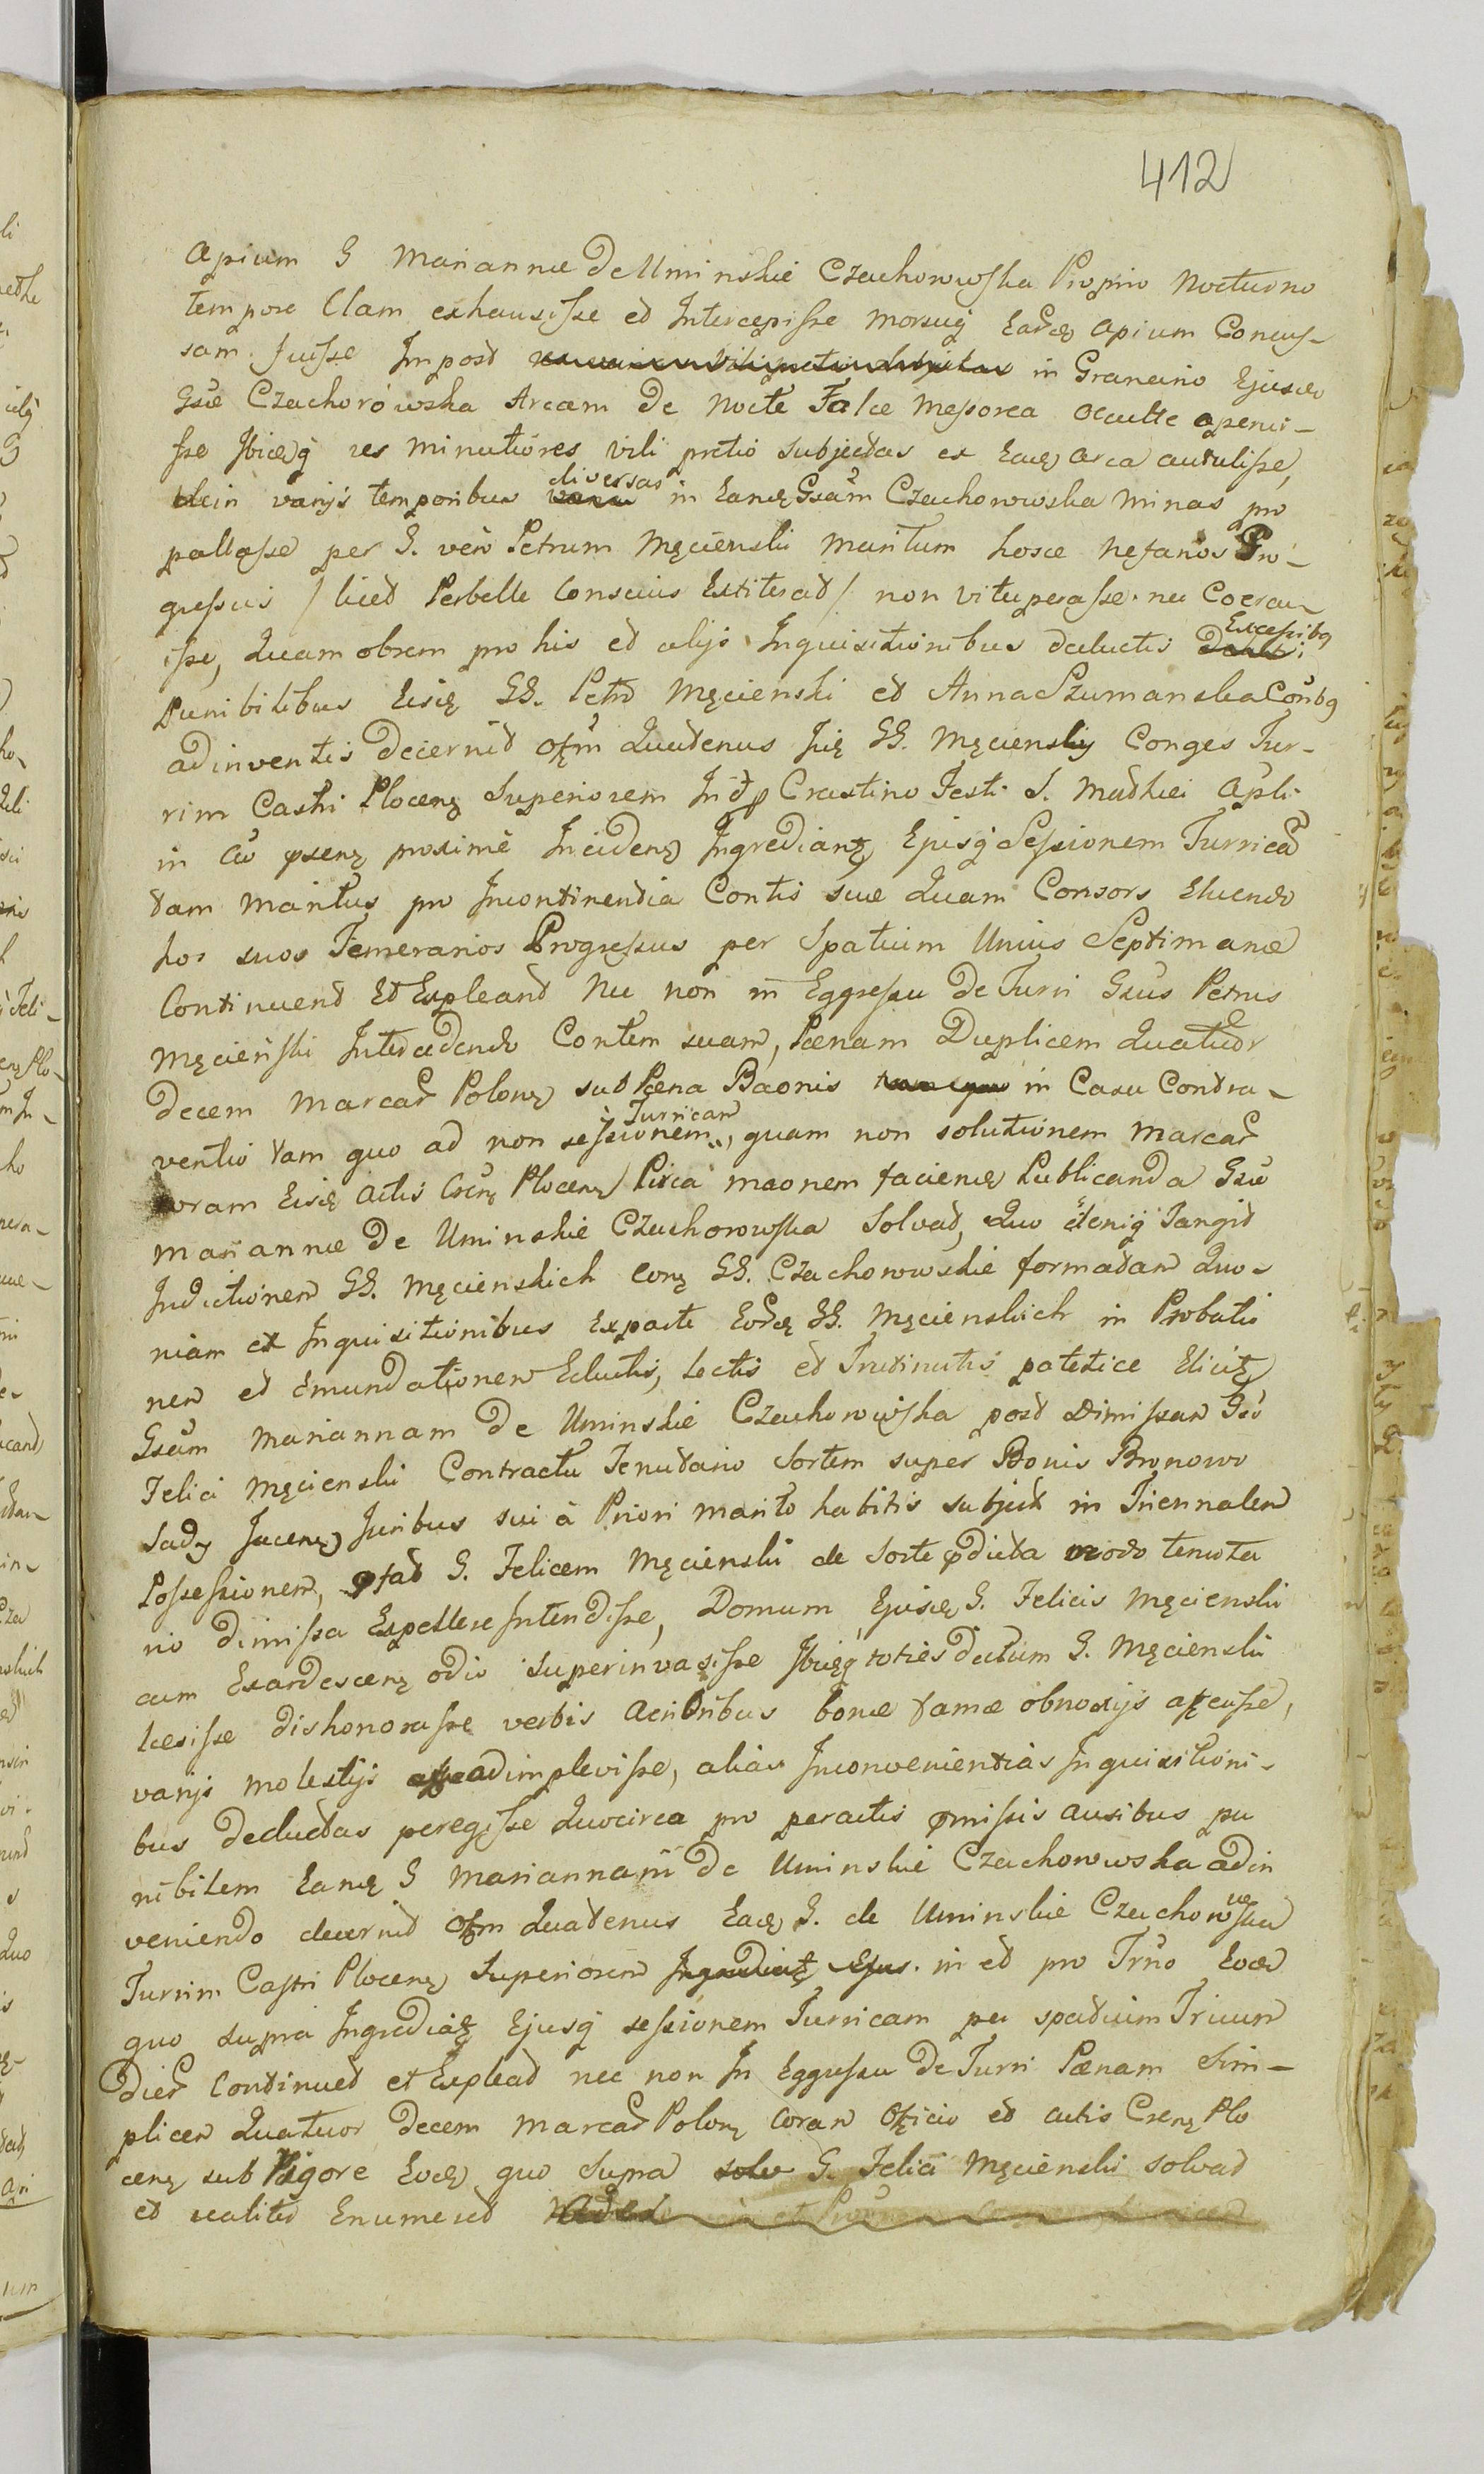 412
Apium G Mariannæ De Uminskie Czachorowska Proprio Nocturno
tempore Clam exhausisse et Intercepisse morsuq̃ Earęd Apium Concus-
sam fuisse Impost in Granario Ejusdę
Gsæ Czachorowska Arcam de Nocte Falce Messorea occulte aperui-
sse Ibidęq̃ res minutiores vili pretio Subjectas ex Eadę Arca abstulisse,
dein varijs temporibus diversas in Eandę Gsam Czachorowska Minas pro
pallasse per G. vero Petrum Męcienski Maritum hosce nefarios Pro-
gressus / licet Perbelle Conscius Extiterat / non vituperasse nec Coercu-
isse, Quam obrem pro his et alijs Inquisitionibus deductis Excessibq
Punibilibus Eosdę GG. Petrū Męcienski et Anna Szumanska Coñbq
adinventis decernit Offm Quatenus Iidę GG. Męcienskij Conges Tur-
rim Castri Plocenę Superiorem In et p Crastino Festi S. Mathei Apli
in Ao pseno proxime Incidenę Ingrediantę Ejusq̃ Sessionem Turricā
tam Maritus pro Incontinentia Contis suæ Quam Consors Eluendo
hos suos Temerarios Progressus per Spatium Unius Septimanæ
Continuent Et Expleant Nec non in Eggressu De Turri Gsus Petrus
Męcieński Intercedendo Contem suam, Pœnam Duplicem Quatuor
decem Marcar̃ Polonę sub Pœna Baonis in Casu Contra-
ventio tam quo ad non sessionem Turricam, quam non solutionem Marcar̃
coram Eisdę Actis Csen̄ Plocenę Parica maonem faciendę Publicanda Gsæ
Mariannæ De Uminskie Czachorowska Solvat, Quo deniq̃ Tangit
Inductionem GG. Męcienskich Conę GG. Czachorowskie formatam Quo-
niam ex Inquisitionibus Ex parte Eordę GG. Męcienskich in Probatio
nem et Emundationem Eductis, Lectis et Trutinatis patetice Elicitę
Gsam Mariannam De Uminskie Czachorowska post Dimissam Gso
Felici Męcienski Contractu Tenutario Sortem super Bonis Bronowo
Sady Jacenę Juribus sui à Priori Marito habitis subject in Triennalem
Possessionem, pfat G. Felicem Męcienski de Sorte pdicta modo tenuta
rio dimissa Expellere Intendisse, Domum Ejusdę G. Felicis Męcienski
cum Exardescenę odio superinvasisse Ibidęq toties dictum G. Męcienski
læsisse dishonorasse verbis Acrioribus bonæ famæ obnoxijs affecisse,
varijs molestijs adimplevisse, alias Inconvenientias Inquisitioni-
bus deductas peregisse Quocirca pro peractis pmissis ausibus pu
nibilem Eandę G Mariannam De Uminskie Czachorowska adin
veniendo decernit Offm Quatenus Eadę G. de Uminskie Czachorowska
Turrim Castri Plocenę Superiorem in et pro Trno Eodē
quo supra Ingrediatę Ejusq̃ sessionem Turricam per spatium Trium
Dier̃ Continuet et Expleat nec non In Eggressu De Turri Pænam Sim-
plicem Quatuor Decem Marcar̃ Polonę Coram Officio et Actis Csenę Plo
cenę sub Rigore Eodę quo Supra G. Felici Męcienski solvat
et realiter Enumeret